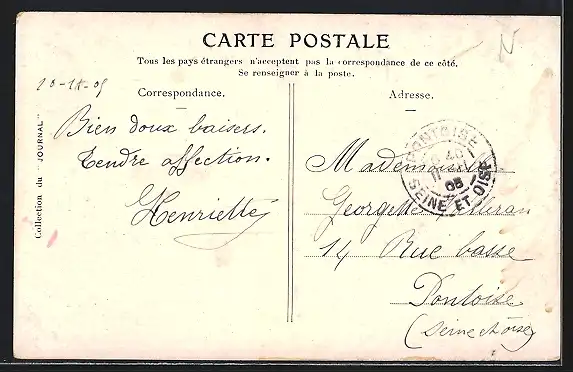 CARTE POSTALE
Tous les pays étrangers n'acceptent pas la correspondance de ce côté.
Se renseigner à la poste.
Correspondance.
Adresse.
Collection du "JOURNAL"
Bien doux baisers.
Tendre affection.
Henriette
Mademoiselle
Georgette
14 Rue basse
Pontoise
(Seine et oise)
PONTOISE
05
SEINE ET OISE
N